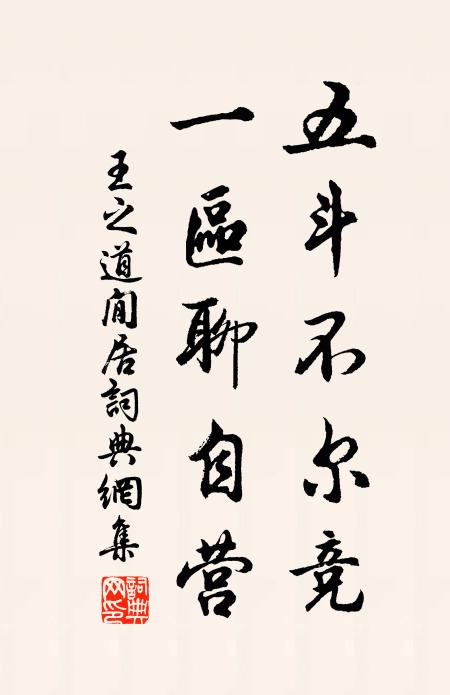 五斗不尔竞
一區聊自营
王之道闲居詞典網集
詞典网印